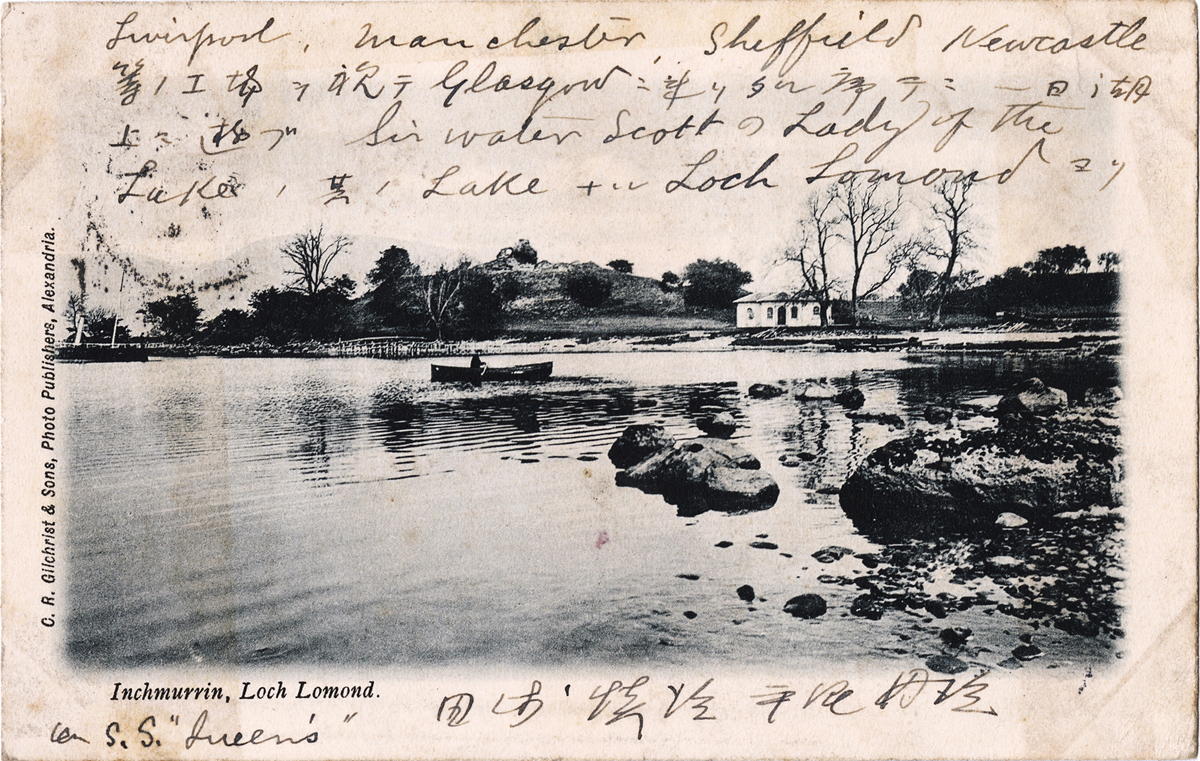 Liverpool, Manchester, Sheffield Newcastle
等ノ工場ヲ視テ Glasgow ニ来リ ニ 一日湖
上ニ遊ブ Sir water Scott ノ Lady of the
Lake ノ其ノ Lake ナル Loch Lomond ヨリ
C. R. Gilchrist & Sons, Photo Publishers, Alexandria.
Inchmurrin, Loch Lomond.
on S.S. "Queen's"